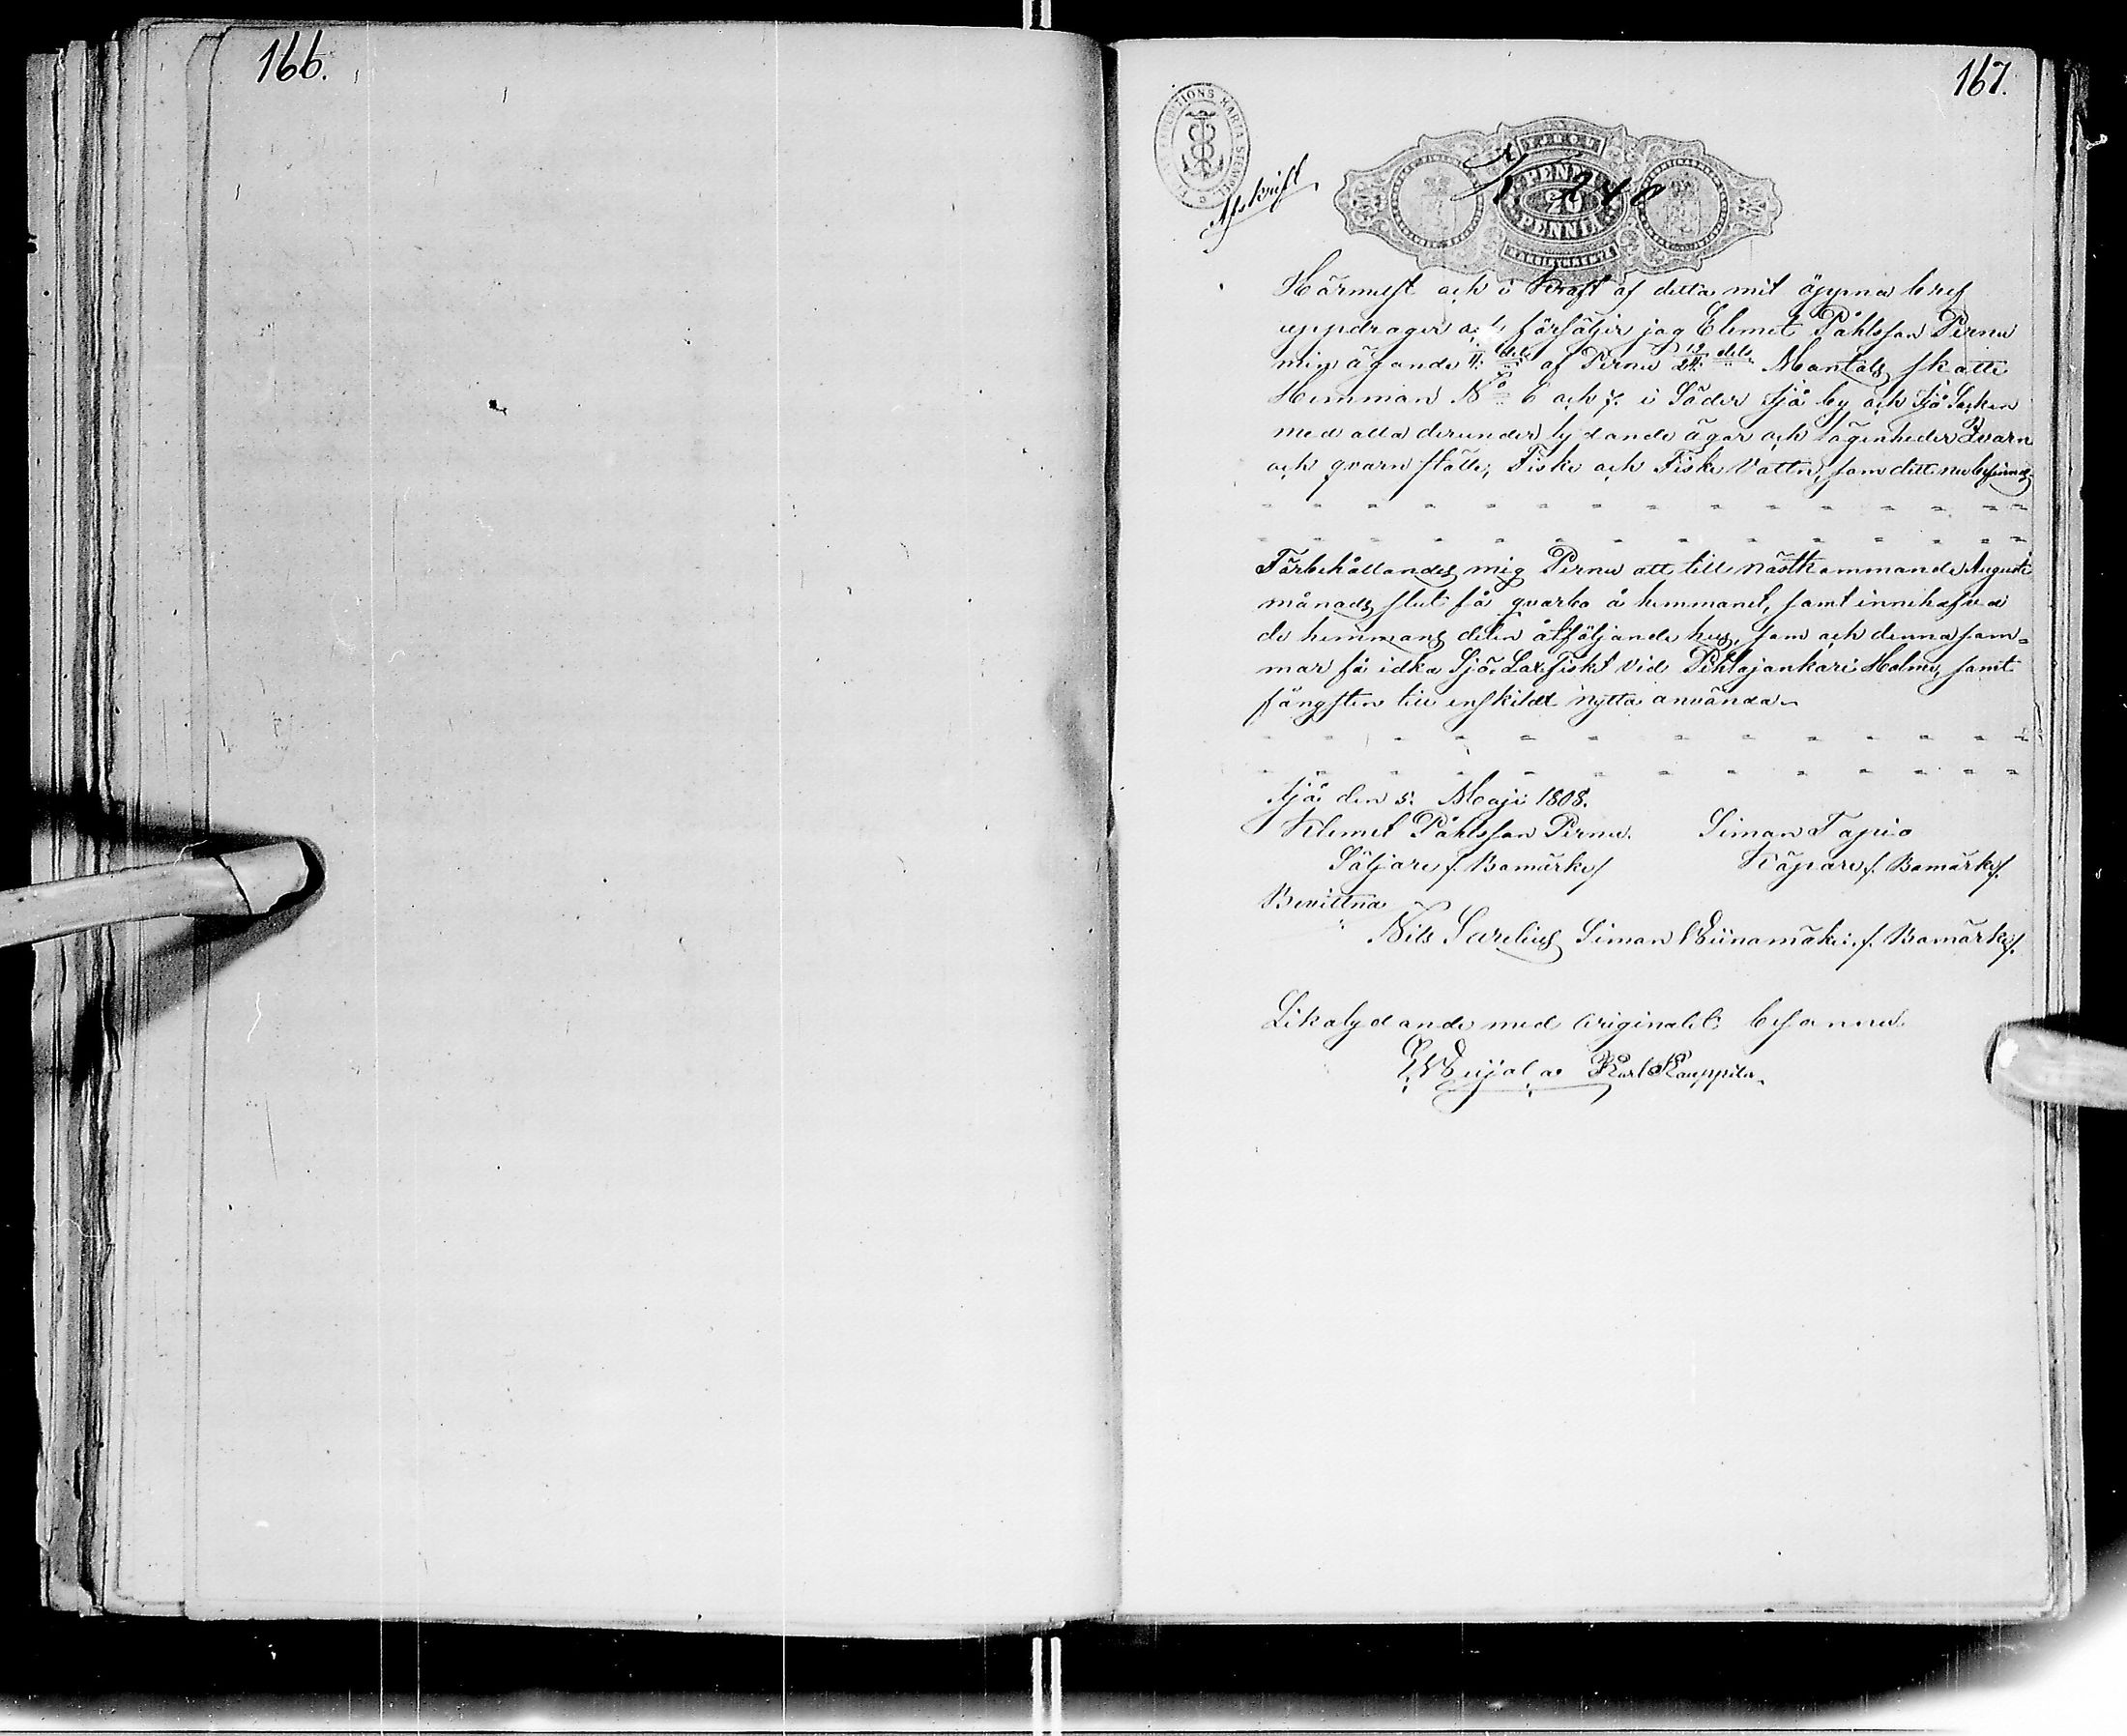 166.
167.
Afskrift
PENNI
20
PENNIÄ
Härmest och i Kraft af detta mit öppna bref
uppdrager och försäljer jag Clemet Påhlsson Pernu
min ägande 1/4 dels af Pernu 19/24 dels Mantals skatte
Hemman No 6 och 7. i Söder Ijå by och Ijå Socken
med alla derunder lydande ägor och lägenheder Qvarn
och qvarnställe, Fiske och Fiske Vatten, som dett nu befinnes
Förbehållandes mig Pernu att till nästkommande Augusti
månads slut få qvarbo å hemmanet, samt innehafva
de hemmans delen åtföljande hus, som och denna som-
mar få idka Sjö Lax fiskt vid Pihlajankari Holme, samt
fångsten till enskildt nytta använda
Ijå den 5. Maji 1808.
Klemet Påhlsson Pernu. Simon Tapio
Säljare /: Bomärke/ Köpare /: Bomärke/.
Bevittna
Nils Sarelius Simon Wiinamäki /: Bomärke/.
Likalydande med Originalet befannes.
Karl Kauppila